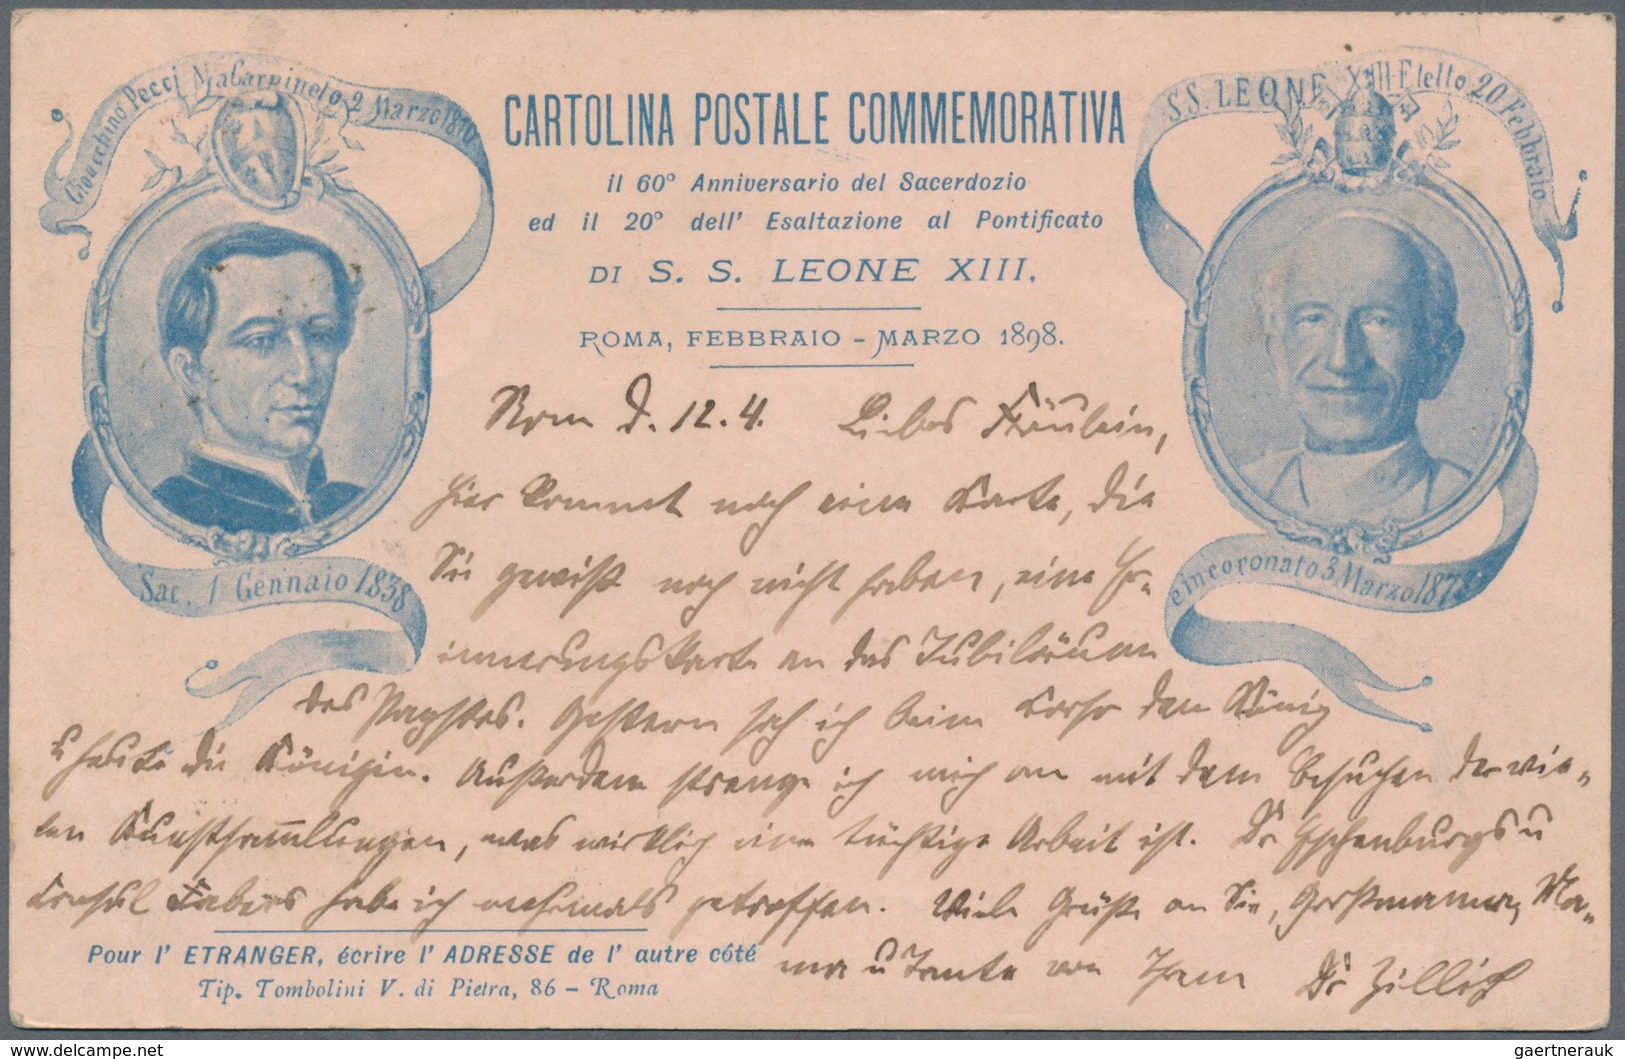 Gioacchino Pecci N. a Carpineto 2 Marzo 1810
S.S. LEONE XIII. Eletto 20 Febbraio
CARTOLINA POSTALE COMMEMORATIVA
il 60° Anniversario del Sacerdozio
ed il 20° dell' Esaltazione al Pontificato
DI S. S. LEONE XIII.
ROMA, FEBBRAIO - MARZO 1898.
Sac. 1 Gennaio 1838
e incoronato 3 Marzo 1878
Rom d. 12.4. Liebes Fräulein,
hier kommt noch eine Karte, die
Sie gewiß noch nicht haben, eine Er-
innerungskarte an das Jubiläum
des Papstes. Gestern sah ich beim Corso den König
u heute die Königin. Außerdem strenge ich mich an mit dem Besuchen der vie-
len Kunstsammlungen, was wirklich eine tüchtige Arbeit ist. Dr Eschenburgs u
Consul Fabers habe ich mehrmals getroffen. Viele Grüße an Sie, Großmama, Ma-
ma u Tante von Ihrem Dr Zillich
Pour l' ETRANGER, écrire l' ADRESSE de l' autre côté
Tip. Tombolini V. di Pietra, 86 - Roma
delcampe.net
gaertnerauk